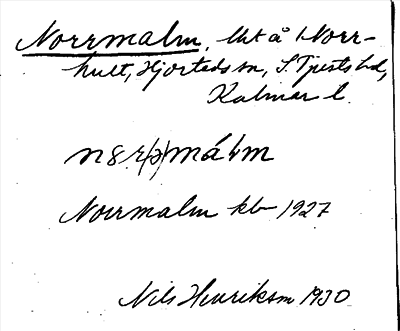 Norrmalm, lht å Norr-
hult, Hjorteds sn, S. Tjusts hd,
Kalmar l.
Norrmalm kb 1927
Nils Henriksson 1930